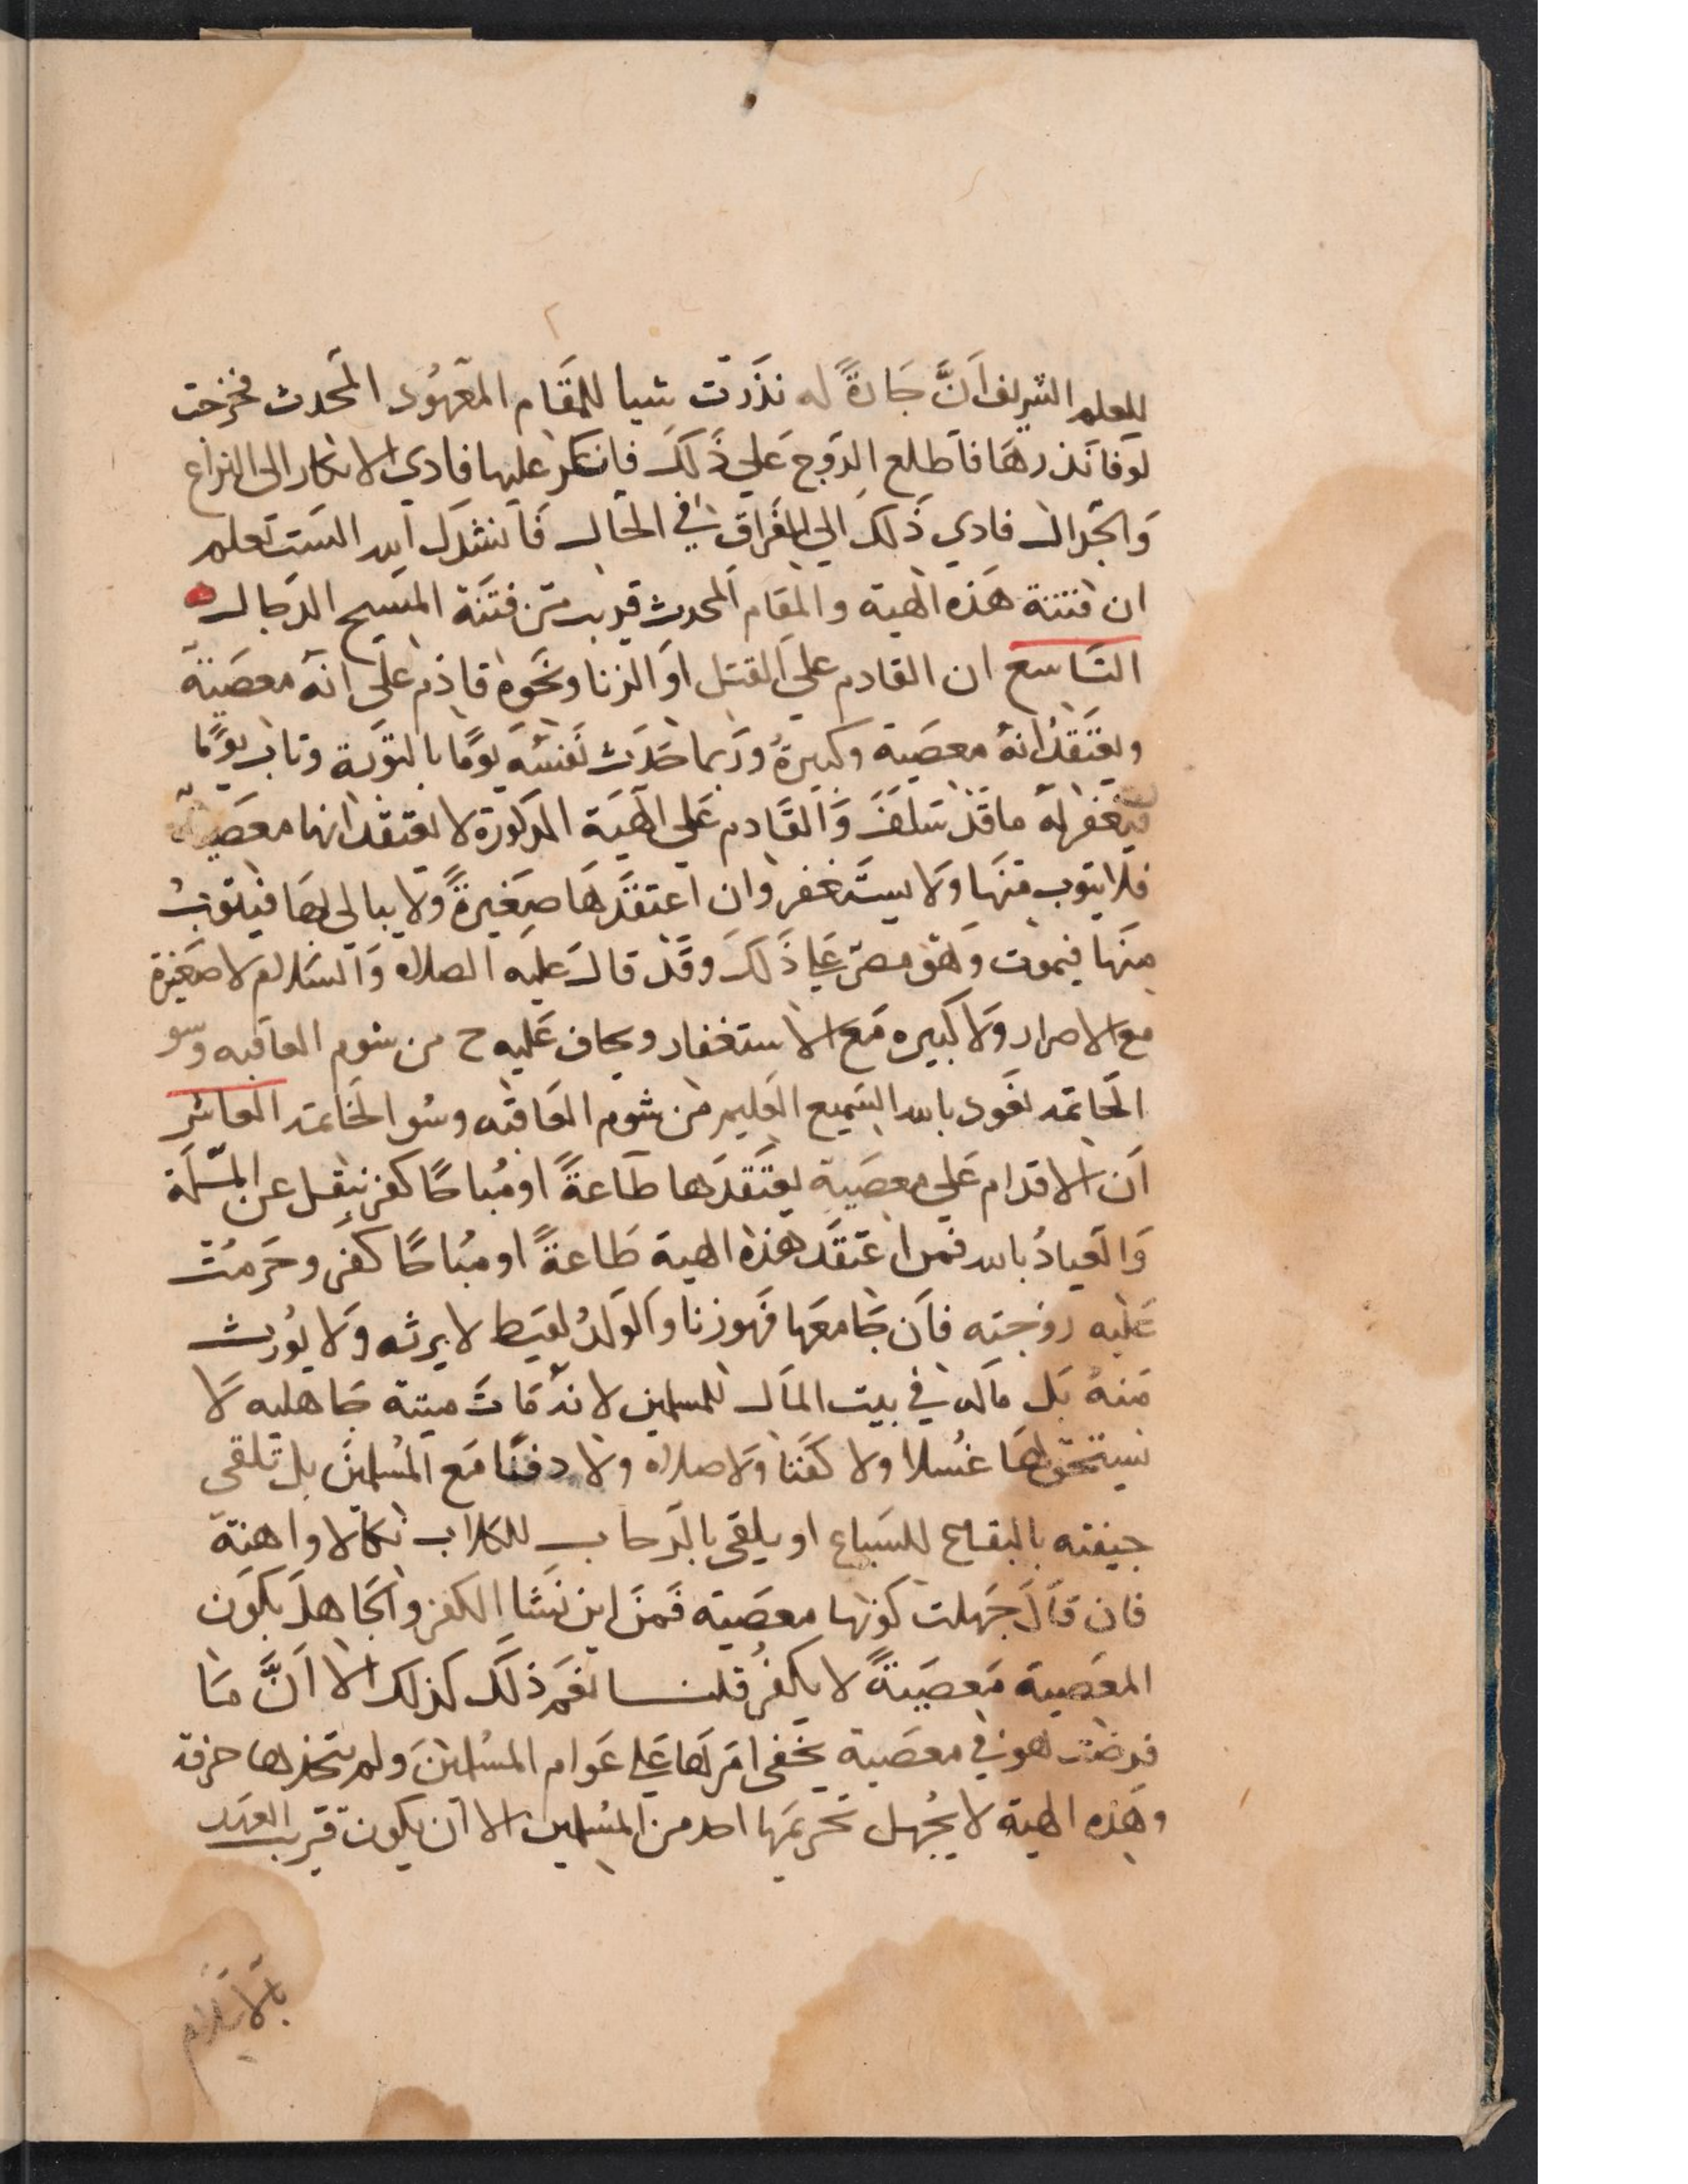 للعلم الشريف أنَّ جَارةً له نذَرت شيا للمقَام المعَهُود المحدث فخرجت
لوَفا نَذرهَا فاَطلع الزوج عَلي ذَلكَ فانكر عليها فادي الانكار الى النزاع
وَالجدال فادي ذَلكَ الي الفراق في الحال فَانشدك الله الست تَعلم
ان فتنة هَذه الهية والمقام المحدث قريب من فتنَة المسيح الدجال
التَاسع ان القادم علي القتل اوَ الزنا ونحَوه قادم علي انه معصَية
ويعتَقدُ انهُ معصَية وكبيرةُ ورَبما حَدَث نَفسَه يَومًا بالتوَبة وتاب يوَمًا
فيغفر لهَ ماقَد سَلفَ وَالقَادم عَلي الهيَة المذكورة لا يعتقد انها معصية
فلا يتوب منَها وَلا يستَغفر وان اعتقَدهَا صغَيرةً وَلا يبالي بهَا فيتوبُ
منهَا فيموت وَهوَ مصر عَلي ذَلكَ وقَد قالَ عَليه الصلاه وَالسَلام لا صغَيرة
مع الاصرار وَلا كبيره مَع الاستغفار ويخاف عَليه ح من شوم العاقبه وسو
الخاتمه نعَوذ بالله السَميع العَليم من شوم العَاقبه وسُو الخَاتمة العاشر
أن الاقدام عَلي معصَية يعتَقدَها طَاعةً او مُباحًا كفر ينقل عن الملة
وَالعَياذُ بالله فمن اعتقَد هَذه الهية طَاعةً او مبُاحًا كفَر وحَرمُت
عَليه زوَجته فاَن جَامعَها فهَو زنا وَالوَلدُ لقيَط لا يرثه وَلا يوُرث
منَهُ بَل مَاله في بيت المَال للمسلمين لانهُ مَاتَ ميتة جَاهليه لا
يستحق لهَا غسُلا ولا كفنًا وَلا صلاه ولا دفنًا مَع المُسلمينَ بل تلقى
جيفته بالبقاع للسَباع او يلقى بالرَحاب للكلاب نكالا واهنة
فان قاَلَ جَهلت كونها معصَية فمَن اين نَشا الكفر وَالجَاهلَ بكوَن
المعَصية مَعصَيةً لا يكفرُ قلنا نعَم ذلَك كذلك الا اَنَّ مَا
فرضَت هو في معصَية يخَفى امَرهَا عَلي عَوام المسُلمينَ ولم يتخذها حرفة
وهَذه الهية لا يجُهل تَحريمَها احد من المسُلمين الا اَن يكون قَريب العهَد
بالاسَلام